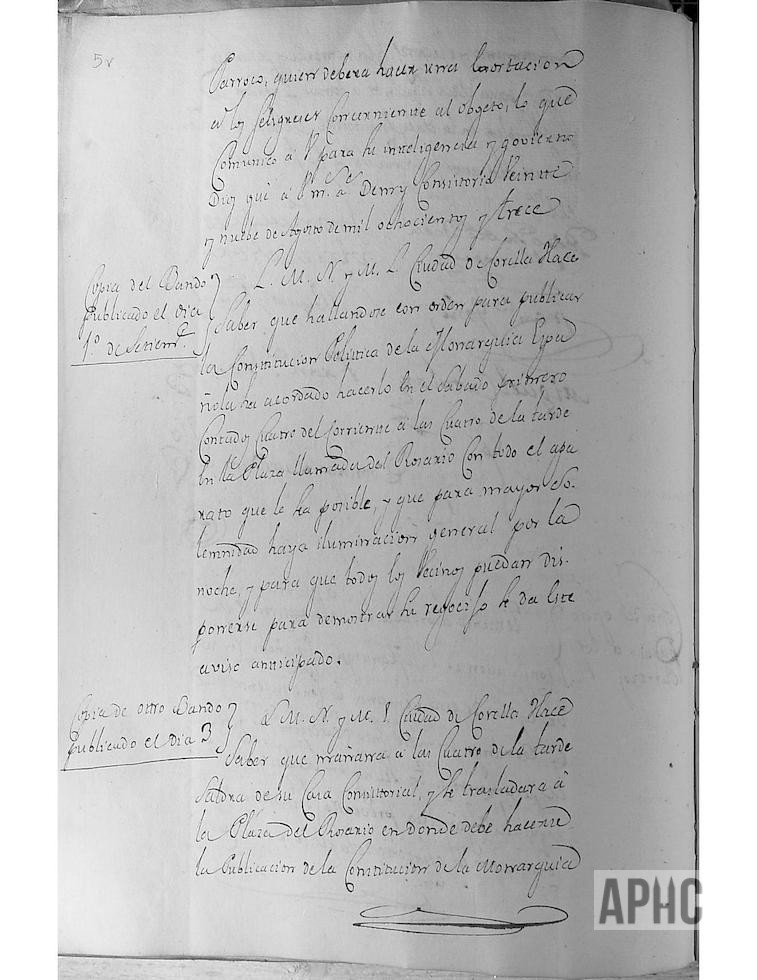 5v
Parroco, quien debera hacer una exortacion
a los feligreses concerniente al objeto, lo que
Comunico a V para su inteligencia y govierno
Dios gue a Vm.
y nuebe de Agosto de mil ochocientos y trece
Copia del Bando
publicado el dia
1.º de Setiem.e
L. M. N. y M. L. Ciudad de Corella Hace
Saber que hallandose con orden para publicar
la Constitucion Politica de la Monarquia Espa
ñola ha acordado hacerlo en el Sabado primero
Contados cuatro del corriente a las Cuatro de la tarde
en la Plaza llamada del Rosario con todo el apa
rato que le sea posible, y que para mayor so-
lemnidad haya iluminacion general por la
noche, y para que todos los Vecinos puedan dis-
ponerse para demostrar su regocijo se da este
aviso anticipado.
Copia de otro Bando
publicado el dia 3
L. M. N. y M. L. Ciudad de Corella Hace
Saber que mañana a las Cuatro de la tarde
Saldra de su Casa Consistorial, y se trasladara à
la Plaza del Rosario en donde debe hacerse
la Publicacion de la Constitucion de la Monarquia
APHC